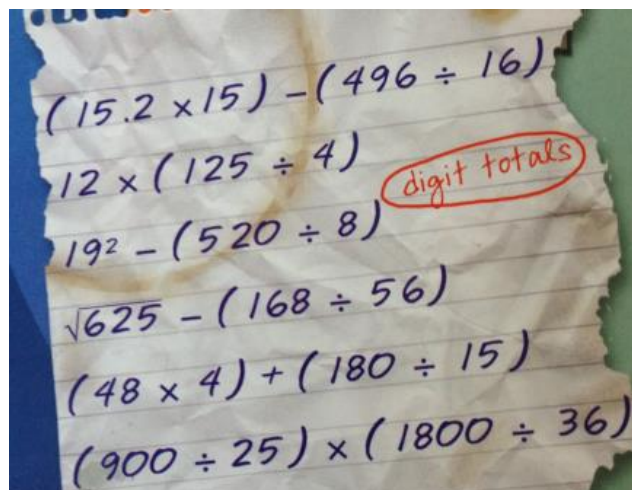 (15.2 × 15) – (496 ÷ 16)
12 × (125 ÷ 4)
digit totals
19² – (520 ÷ 8)
√625 – (168 ÷ 56)
(48 × 4) + (180 ÷ 15)
(900 ÷ 25) × (1800 ÷ 36)